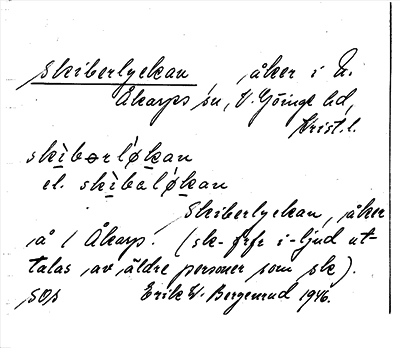 Skiberlyckan, åker i N.
Åkarps sn, V. Göinge hd,
Krist. l.
skìbərløkan
el. skìbəløkan
Skiberlyckan, åker
å 1 Åkarp. (sk- frfr i-ljud ut-
talas av äldre personer som sk).
SOs Erik W. Bergenrud 1946.